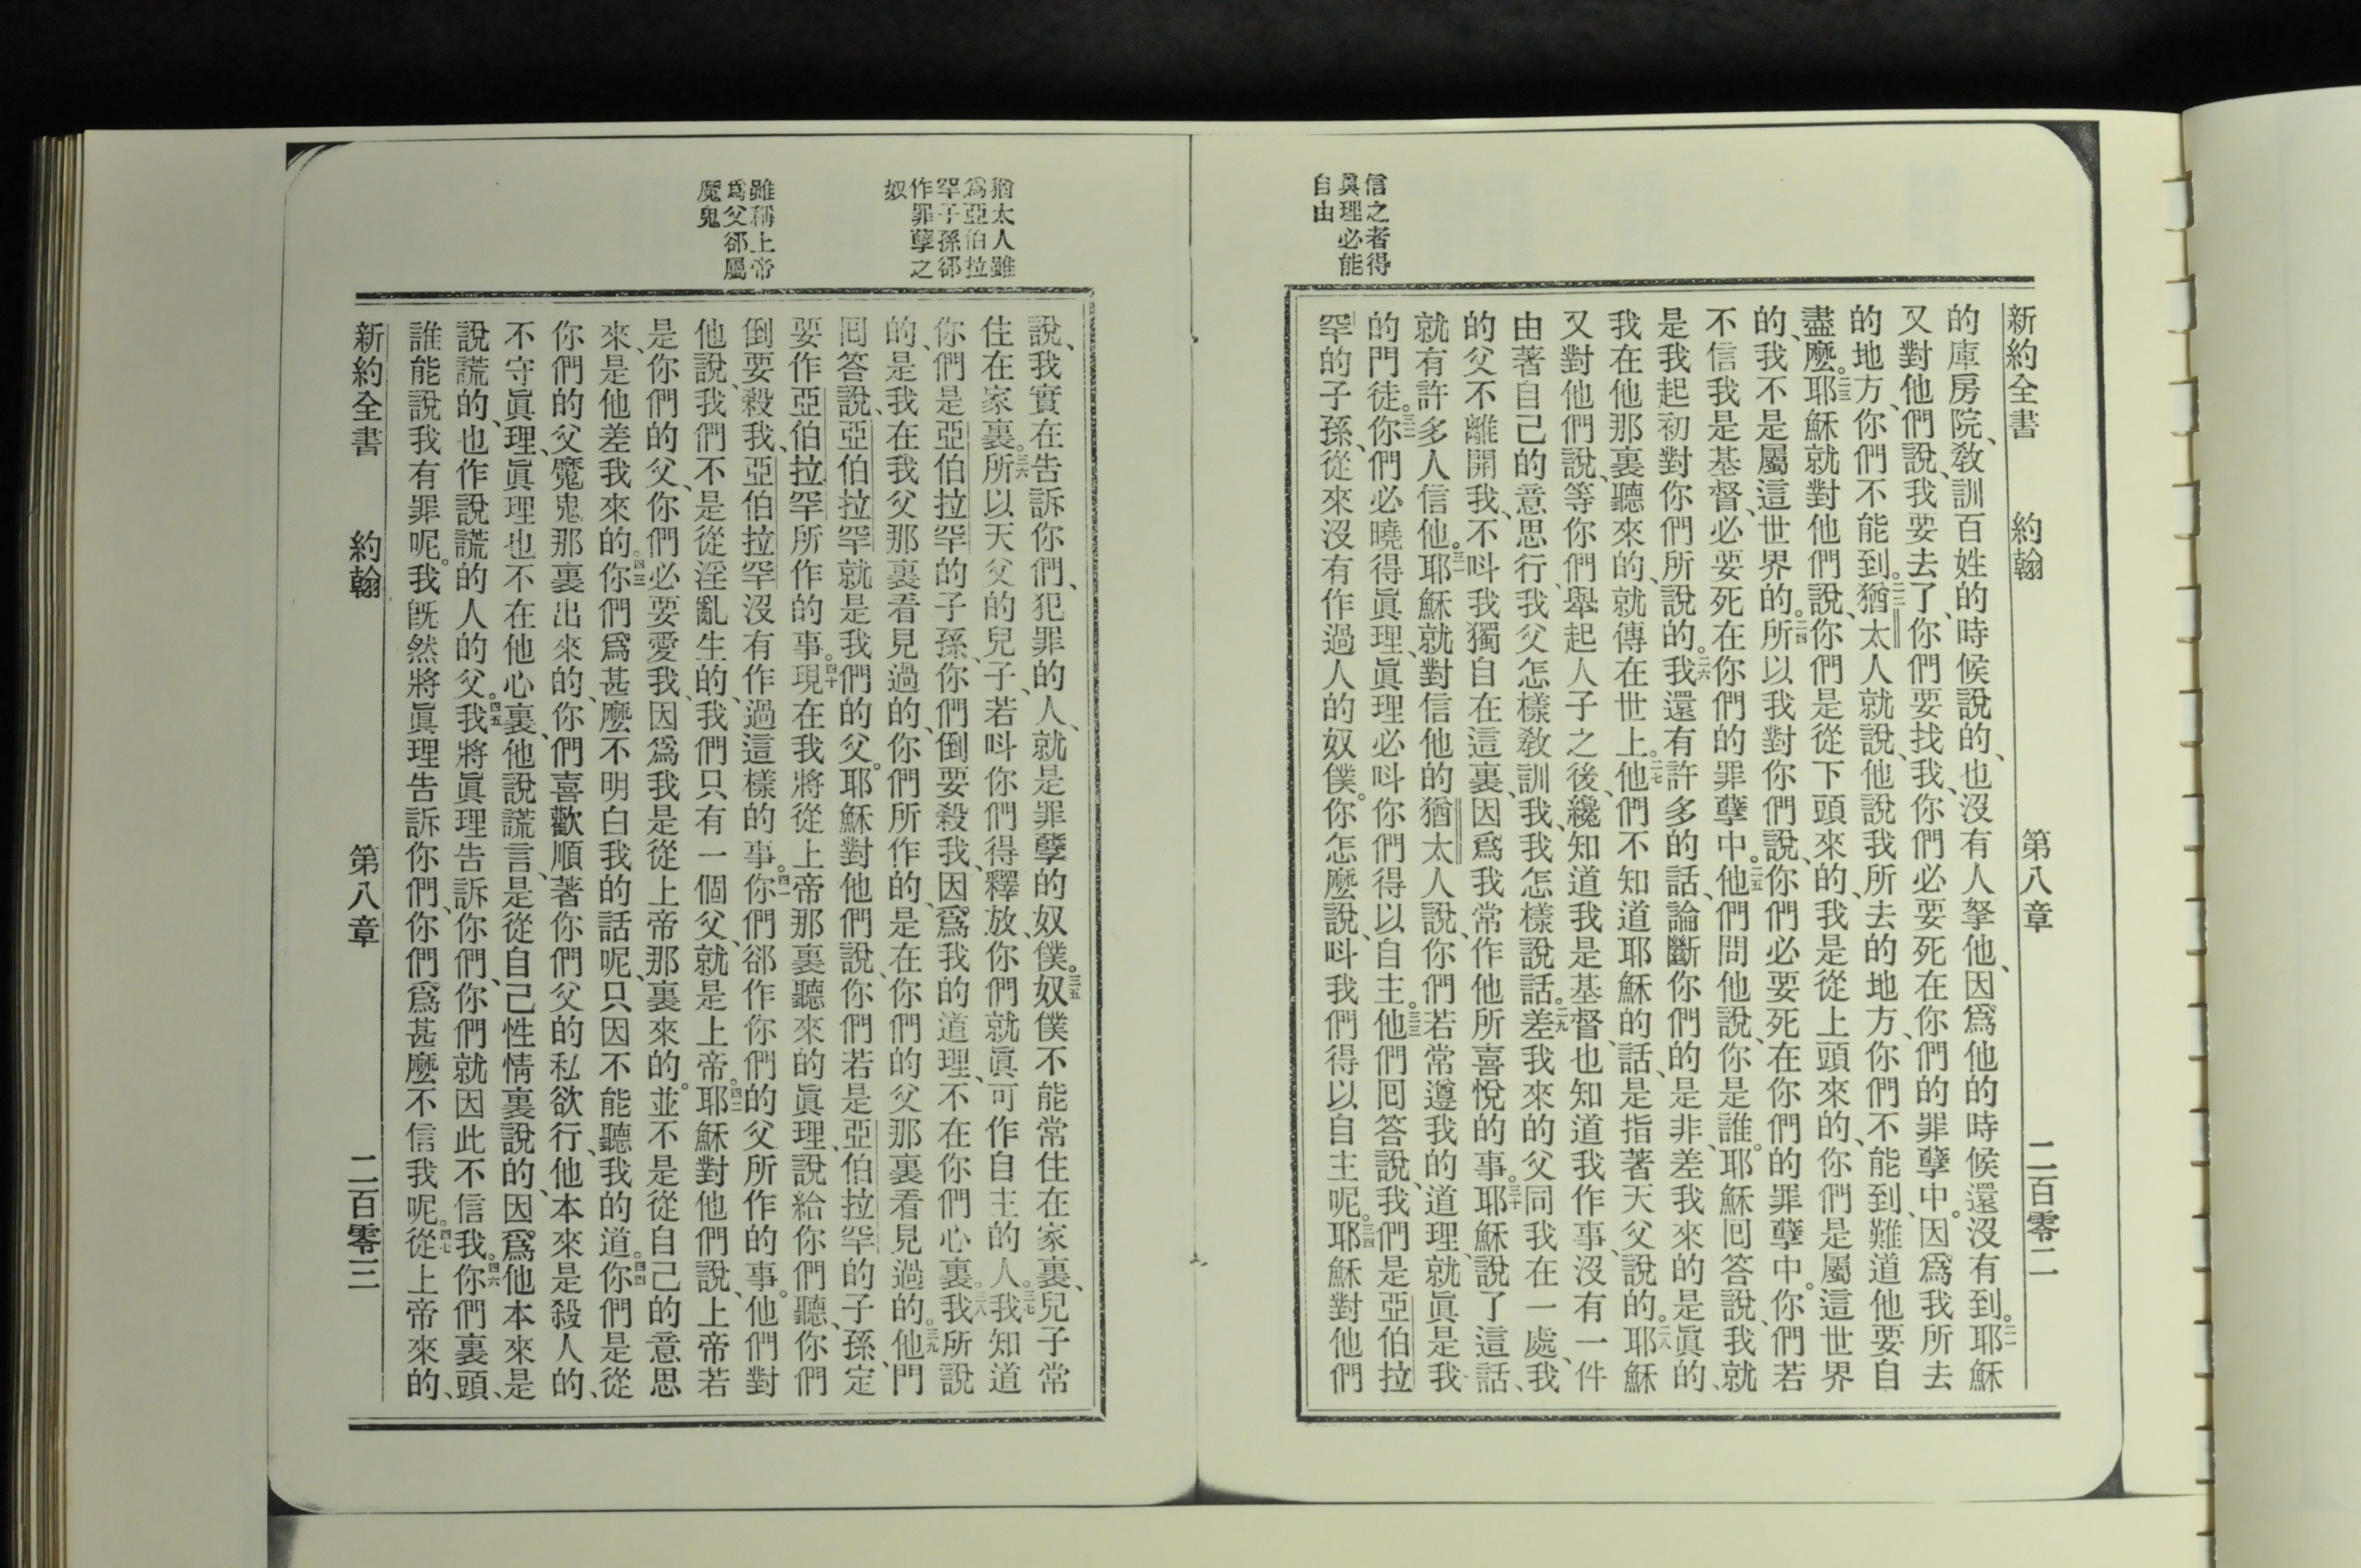 信之者得
眞理必能
自由
新約全書 約翰 第八章 二百零二
的庫房院、敎訓百姓的時候說的、也沒有人拏他、因爲他的時候還沒有到。二一耶穌
又對他們說、我要去了、你們要找我、你們必要死在你們的罪孽中。因爲我所去
的地方、你們不能到。二二猶太人就說、他說我所去的地方、你們不能到、難道他要自
盡麼。二三耶穌就對他們說、你們是從下頭來的、我是從上頭來的、你們是屬這世界
的、我不是屬這世界的。二四所以我對你們說、你們必要死在你們的罪孽中。你們若
不信我是基督、必要死在你們的罪孽中。二五他們問他說、你是誰。耶穌回答說、我就
是我起初對你們所說的。二六我還有許多的話、論斷你們的是非、差我來的是眞的、
我在他那裏聽來的、就傳在世上。二七他們不知道耶穌的話、是指著天父說的。二八耶穌
又對他們說、等你們舉起人子之後、纔知道我是基督、也知道我作事、沒有一件
由著自己的意思行、我父怎樣敎訓我、我怎樣說話。二九差我來的父同我在一處、我
的父不離開我、不呌我獨自在這裏、因爲我常作他所喜悅的事。三十耶穌說了這話、
就有許多人信他。三一耶穌就對信他的猶太人說、你們若常遵我的道理、就眞是我
的門徒。三二你們必曉得眞理、眞理必呌你們得以自主。三三他們回答說、我們是亞伯拉
罕的子孫、從來沒有作過人的奴僕。你怎麼說、呌我們得以自主呢。三四耶穌對他們
猶太人雖
爲亞伯拉
罕子孫郤
作罪孽之
奴
雖稱上帝
爲父郤屬
魔鬼
說、我實在告訴你們、犯罪的人、就是罪孽的奴僕。三五奴僕不能常住在家裏、兒子常
住在家裏。三六所以天父的兒子、若呌你們得釋放、你們就眞可作自主的人。三七我知道
你們是亞伯拉罕的子孫、你們倒要殺我、因爲我的道理、不在你們心裏。三八我所說
的、是我在我父那裏看見過的、你們所作的、是在你們的父那裏看見過的。三九他門
回答說、亞伯拉罕就是我們的父。耶穌對他們說、你們若是亞伯拉罕的子孫、定
要作亞伯拉罕所作的事。四十現在我將從上帝那裏聽來的眞理、說給你們聽、你們
倒要殺我、亞伯拉罕沒有作過這樣的事。四一你們郤作你們的父所作的事。他們對
他說、我們不是從淫亂生的、我們只有一個父、就是上帝。四二耶穌對他們說、上帝若
是你們的父、你們必要愛我、因爲我是從上帝那裏來的。並不是從自己的意思
來、是他差我來的。四三你們爲甚麼不明白我的話呢、只因不能聽我的道。四四你們是從
你們的父魔鬼那裏出來的、你們喜歡順著你們父的私欲行、他本來是殺人的、
不守眞理、眞理也不在他心裏、他說謊言、是從自己性情裏說的、因爲他本來是
說謊的、也作說謊的人的父。四五我將眞理告訴你們、你們就因此不信我。四六你們裏頭、
誰能說我有罪呢。我旣然將眞理告訴你們、你們爲甚麼不信我呢。四七從上帝來的、
新約全書 約翰 第八章 二百零三